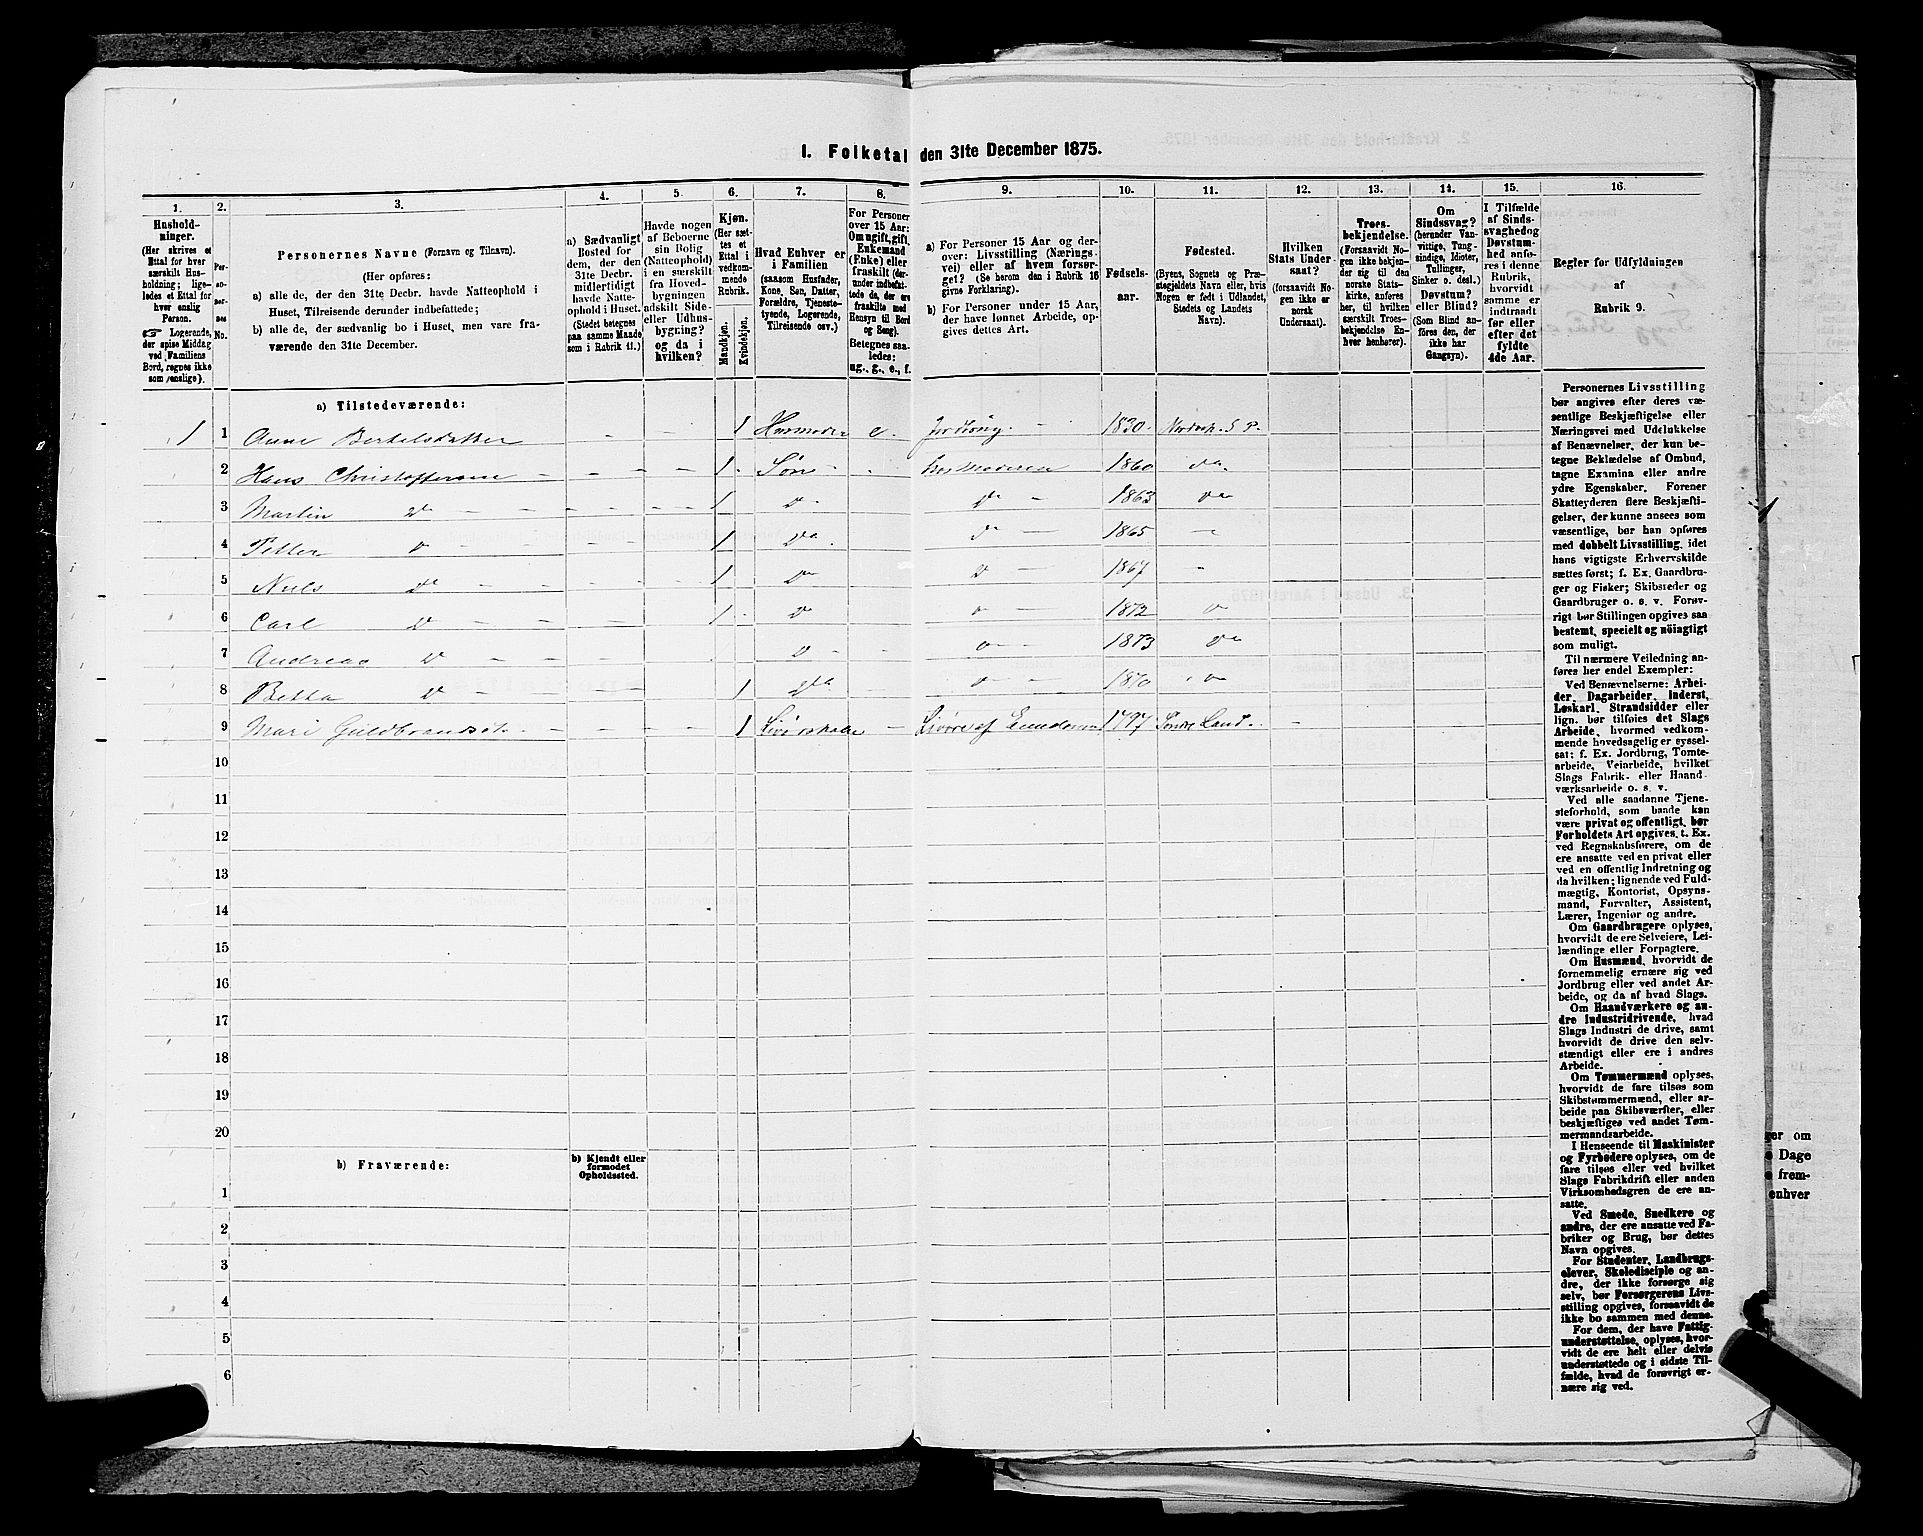 I. Folketal den 31te December 1875.
1.
2.
3.
4.
5.
6.
7.
8.
9.
10.
11.
12.
13.
14.
15.
16.
Hushold-
ninger.
(Her skrives et
Ettal for hver
særskilt Hus-
holdning; lige-
ledes et Ettal for
hver enslig
Person.
☞ Logerende,
der spise Middag
ved Familiens
Bord, regnes ikke
som enslige).
Per-
so-
ner-
nes
No.
Personernes Navne (Fornavn og Tilnavn).
(Her opføres:
a) alle de, der den 31te Decbr. havde Natteophold i
Huset, Tilreisende derunder indbefattede;
b) alle de, der sædvanlig bo i Huset, men vare fra-
værende den 31te December.
a) Sædvanligt
Bosted for
dem, der den
31te Decbr.
midlertidigt
havde Natte-
ophold i Huset.
(Stedet betegnes
paa samme Maade
som i Rubrik 11.)
Havde nogen
af Beboerne
sin Bolig
(Natteophold)
i en særskilt
fra Hoved-
bygningen
adskilt Side-
eller Udhus-
bygning?
og da i
hvilken?
Kjøn.
(Her sæt-
tes et
Ettal i
vedkom-
mende
Rubrik.
Mandkjøn.
Kvindekjøn.
Hvad Enhver er
i Familien
(saasom Husfader,
Kone, Søn, Datter,
Forældre, Tjeneste-
tyende, Logerende,
Tilreisende osv.)
For Personer
over 15 Aar:
Om ugift, gift,
Enkemand
(Enke) eller
fraskilt (der-
under indbefat-
tede da, der ere
fraskilte med
Hensyn til Bord
og Seng).
Betegnes saa-
ledes:
ug., g., e., f.
a) For Personer 15 Aar og der-
over: Livsstilling (Nærings-
vei) eller af hvem forsør-
get? (Se herom den i Rubrik 16
givne Forklaring).
b) For Personer under 15 Aar,
der have lønnet Arbeide, op-
gives dettes Art.
Fødsels-
aar.
Fødested.
(Byens, Sognets og Præ-
stegjeldets Navn eller, hvis
Nogen er født i Udlandet,
Stedets og Landets
Navn).
Hvilken
Stats Under-
saat?
(forsaavidt No-
gen ikke er
norsk
Undersaat).
Troes-
bekjendelse.
(Forsaavidt No-
gen ikke bekjen-
der sig til den
norske Stats-
kirke, anføres
her, til hvilken
særskilt Troes-
bekjendelse En-
hver henhører).
Om
Sindssvag?
(herunder Van-
vittige, Tung-
sindige, Idioter,
Tullinger,
Sinker o. desl.)
Døvstum?
eller Blind?
(Som Blind an-
føres den, der
ikke har
Gangsyn).
I Tilfælde
af Sinds-
svaghed og
Døvstum-
hed anfø-
res i denne
Rubrik,
hvorvidt
samme er
indtraadt
før eller
efter det
fyldte
4de Aar.
Regler for Udfyldningen
af
Rubrik 9.
a) Tilstedeværende:
1 1 Anne Bertelsdatter - - 1 Husmoder e. Jordbrug - 1830
2 Hans Christoffersen - - - - 1 Søn - - 1860 do
3 Martin Do - - - - - 1 Do - Do - 1863 do
4 Petter D - - - - 1 Do - D - 1865 -
5 Niels Do - - - - 1 D D - 1867 -
6 Carl D - - - 1 D 1872
7 Andreas D - - - D 1873 Do
8 D - - - 1 Do 1870
9 Mari Guldbrandsdt. - - - 1 - 1797 Søndre Land. -
10
11
12
13
14
15
16
17
18
19
20
b) Fraværende:
b) Kjendt eller
formodet
Opholdssted.
1
2
3
4
5
6
Personernes Livsstilling
bør angives efter deres væ-
sentlige Beskjæftigelse eller
Næringsvei med Udelukkelse
af Benævnelser, der kun be-
tegne Beklædelse af Ombud,
tagne Examina eller andre
ydre Egenskaber. Forener
Skatteyderen flere Beskjæfti-
gelser, der kunne ansees som
væsentlige, bør han opføres
med dobbelt Livsstilling, idet
hans vigtigste Erhvervskilde
sættes først; f. Ex. Gaardbru-
ger og Fisker; Skibsreder og
Gaardbruger o. s. v. Forøv-
rigt bør Stillingen opgives saa
bestemt, specielt og nøiagtigt
som muligt.
Til nærmere Veiledning an-
føres her endel Exempler:
Ved Benævnelserne: Arbei-
der, Dagarbeider, Inderst,
Løskarl, Strandsidder eller
lign. bør tilføies det Slags
Arbeide, hvormed vedkom-
mende hovedsagelig er syssel-
sat; f. Ex. Jordbrug, Tomte-
arbeide, Veiarbeide, hvilket
Slags Fabrik- eller Haand-
værksarbeide o. s. v.
Ved alle saadanne Tjene-
steforhold, som baade kan
være privat og offentligt, bør
Forholdets Art opgives, t. Ex.
ved Regnskabsførere, om de
ere ansatte ved en privat eller
ved en offentlig Indretning og
da hvilken; lignende ved Fuld-
mægtig, Kontorist, Opsyns-
mand, Forvalter, Assistent,
Lærer, Ingeniør og andre.
Om Gaardbrugere oplyses,
hvorvidt de ere Selveiere, Lei-
lændinge eller Forpagtere.
Om Husmænd, hvorvidt de
fornemmelig ernære sig ved
Jordbrug eller ved andet Ar-
beide, og da af hvad Slags.
Om Haandværkere og an-
dre Industridrivende, hvad
Slags Industri de drive, samt
hvorvidt de drive den selv-
stændigt eller ere i andres
Arbeide.
Om Tømmermænd oplyses,
hvorvidt de fare tilsøs som
Skibstømmermænd, eller ar-
beide paa Skibsværfter, eller
beskjæftiges ved andet Tøm-
mermandsarbeide.
I Henseende til Maskinister
og Fyrbødere oplyses, om de
fare tilsøs eller ved hvilket
Slags Fabrikdrift eller anden
Virksomhedsgren de ere an-
satte.
Ved Smede, Snedkere og
andre, der ere ansatte ved Fa-
briker og Brug, bør dettes
Navn opgives.
For Studenter, Landbrugs-
elever, Skoledisciple og an-
dre, der ikke forsørge sig
selv, bør Forsørgerens Livs-
stilling opgives, forsaavidt de
ikke bo sammen med denne.
For dem, der have Fattig-
understøttelse, oplyses, hvor-
vidt de ere helt eller delvis
understøttede og i sidste Til-
fælde, hvad de forøvrigt er-
nære sig ved.
ger om
Dage
frem-
enhver